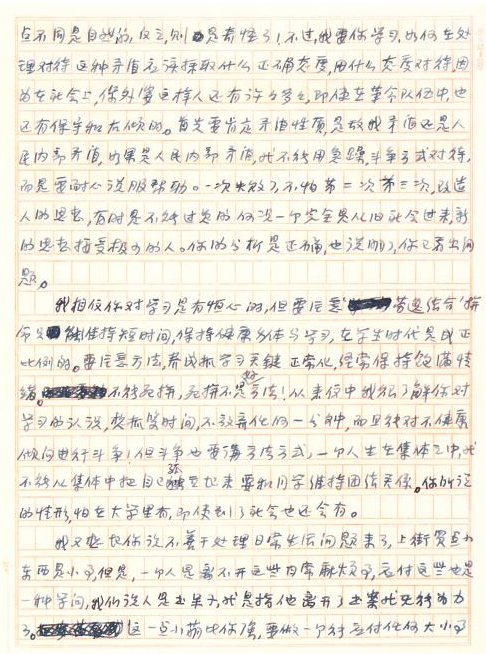 点不同是自然的,反之,则是奇怪了!不过,我要你学习,如何在处
理对待这种矛盾应该採取什么正确态度,用什么态度对待,因
为在社会上,像外婆这样人还有许多多,即使在革命队伍中,也
还有保守和右倾的。首先要肯定矛盾性质,是敌我矛盾还是人
民内部矛盾,如果是人民内部矛盾,就不能用急躁斗争方式对待,
而是要耐心说服帮助。一次失败了,不怕第二次第三次,改造
人的思想,有时是不能过急的何况一个完全是从旧社会过来,新
的思想接受极少的人。你的分析是正确,也说明了,你已看出问
题。
我相信你对学习是有恒心的,但要注意劳逸结合拼
命只能维持短时间,保持健康身体与学习,在学生时代是成正
比例的。要注意方法,养成抓学习关键正常化,经常保持饱满情
绪。不能死拼,死拼不是好方法!从来信中我很了解你对
学习的认识,要抓紧时间,不放弃任何一分钟,而且绝对不健康
倾向进行斗争,但斗争也要讲方法方式,一个人生在集体之中,就
不能从集体中把自己孤立起来要和同学维持团结关系。你所说
的情形,怕在大学里有,即使到了社会也还会有。
我又想起你说不善于处理日常生活问题来了,上街买点小
东西是小事,但是,一个人是离不开这些日常麻烦事,应付这些也是
一种学问,我们说人是书呆子,就是指他离开了书案就无能为力
了。这一点小萌比你强,要做一个能应付任何大小事